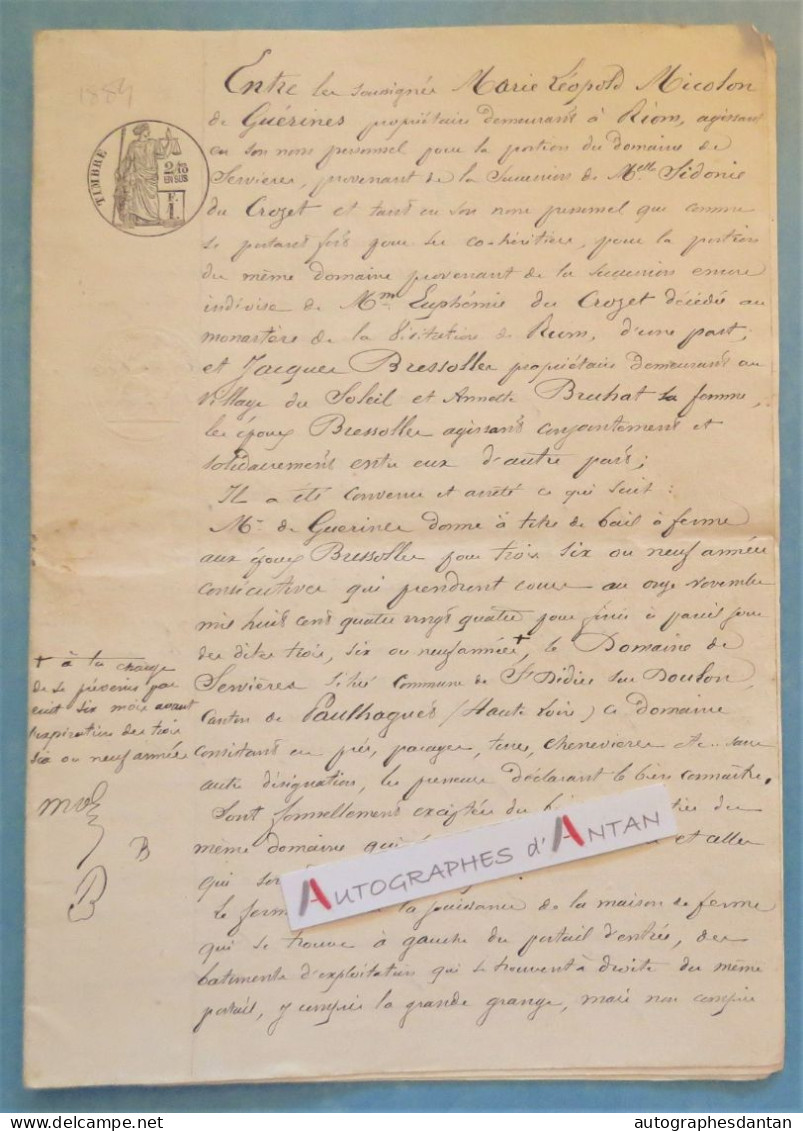 1884
TIMBRE
2/10
EN SUS
F.
1.
Entre les soussignés Marie Léopold Micolon
de Guérines propriétaire demeurant à Riom, agissant
en son nom personnel pour la portion du domaine de
Servières, provenant de la Succession de Melle Sidonie
du Crozet et tant en son nom personnel que comme
se portant fort pour ses co-héritiers, pour la portion
du même domaine provenant de la succession encore
indivise de Mme Euphémie du Crozet décédée au
monastère de la Visitation de Riom, d'une part;
et Jacques Bressoller propriétaire demeurant au
village du Soleil et Annette Bruhat sa femme,
les époux Bressoller agissant conjointement et
solidairement entre eux d'autre part;
Il a été convenu et arrêté ce qui suit:
Mr de Guérines donne à titre de bail à ferme
aux époux Bressoller pour trois six ou neuf années
consécutives qui prendront cours au onze novembre
mil huit cent quatre vingt quatre pour finir à pareil jour
des dites trois, six ou neuf années+, le Domaine de
Servières situé commune de St Didier sur Doulon,
Canton de Paulhaguet (Haute Loire) ce Domaine
consistant en prés, pacages, terres, chenevières etc.. sans
autre désignation, les preneurs déclarant le bien connaître.
Sont formellement exceptées du
même domaine qui et aller
qui
Le la jouissance de la maison de ferme
qui se trouve à gauche du portail d'entrée, des
bâtiments d'exploitation qui se trouvent à droite du même
portail, y compris la grande grange, mais non compris
+ à la charge
de se prévenir par
écrit six mois avant
l'expiration des trois
six ou neuf années
B
B
AUTOGRAPHES d'ANTAN
delcampe.net
autographesdantan